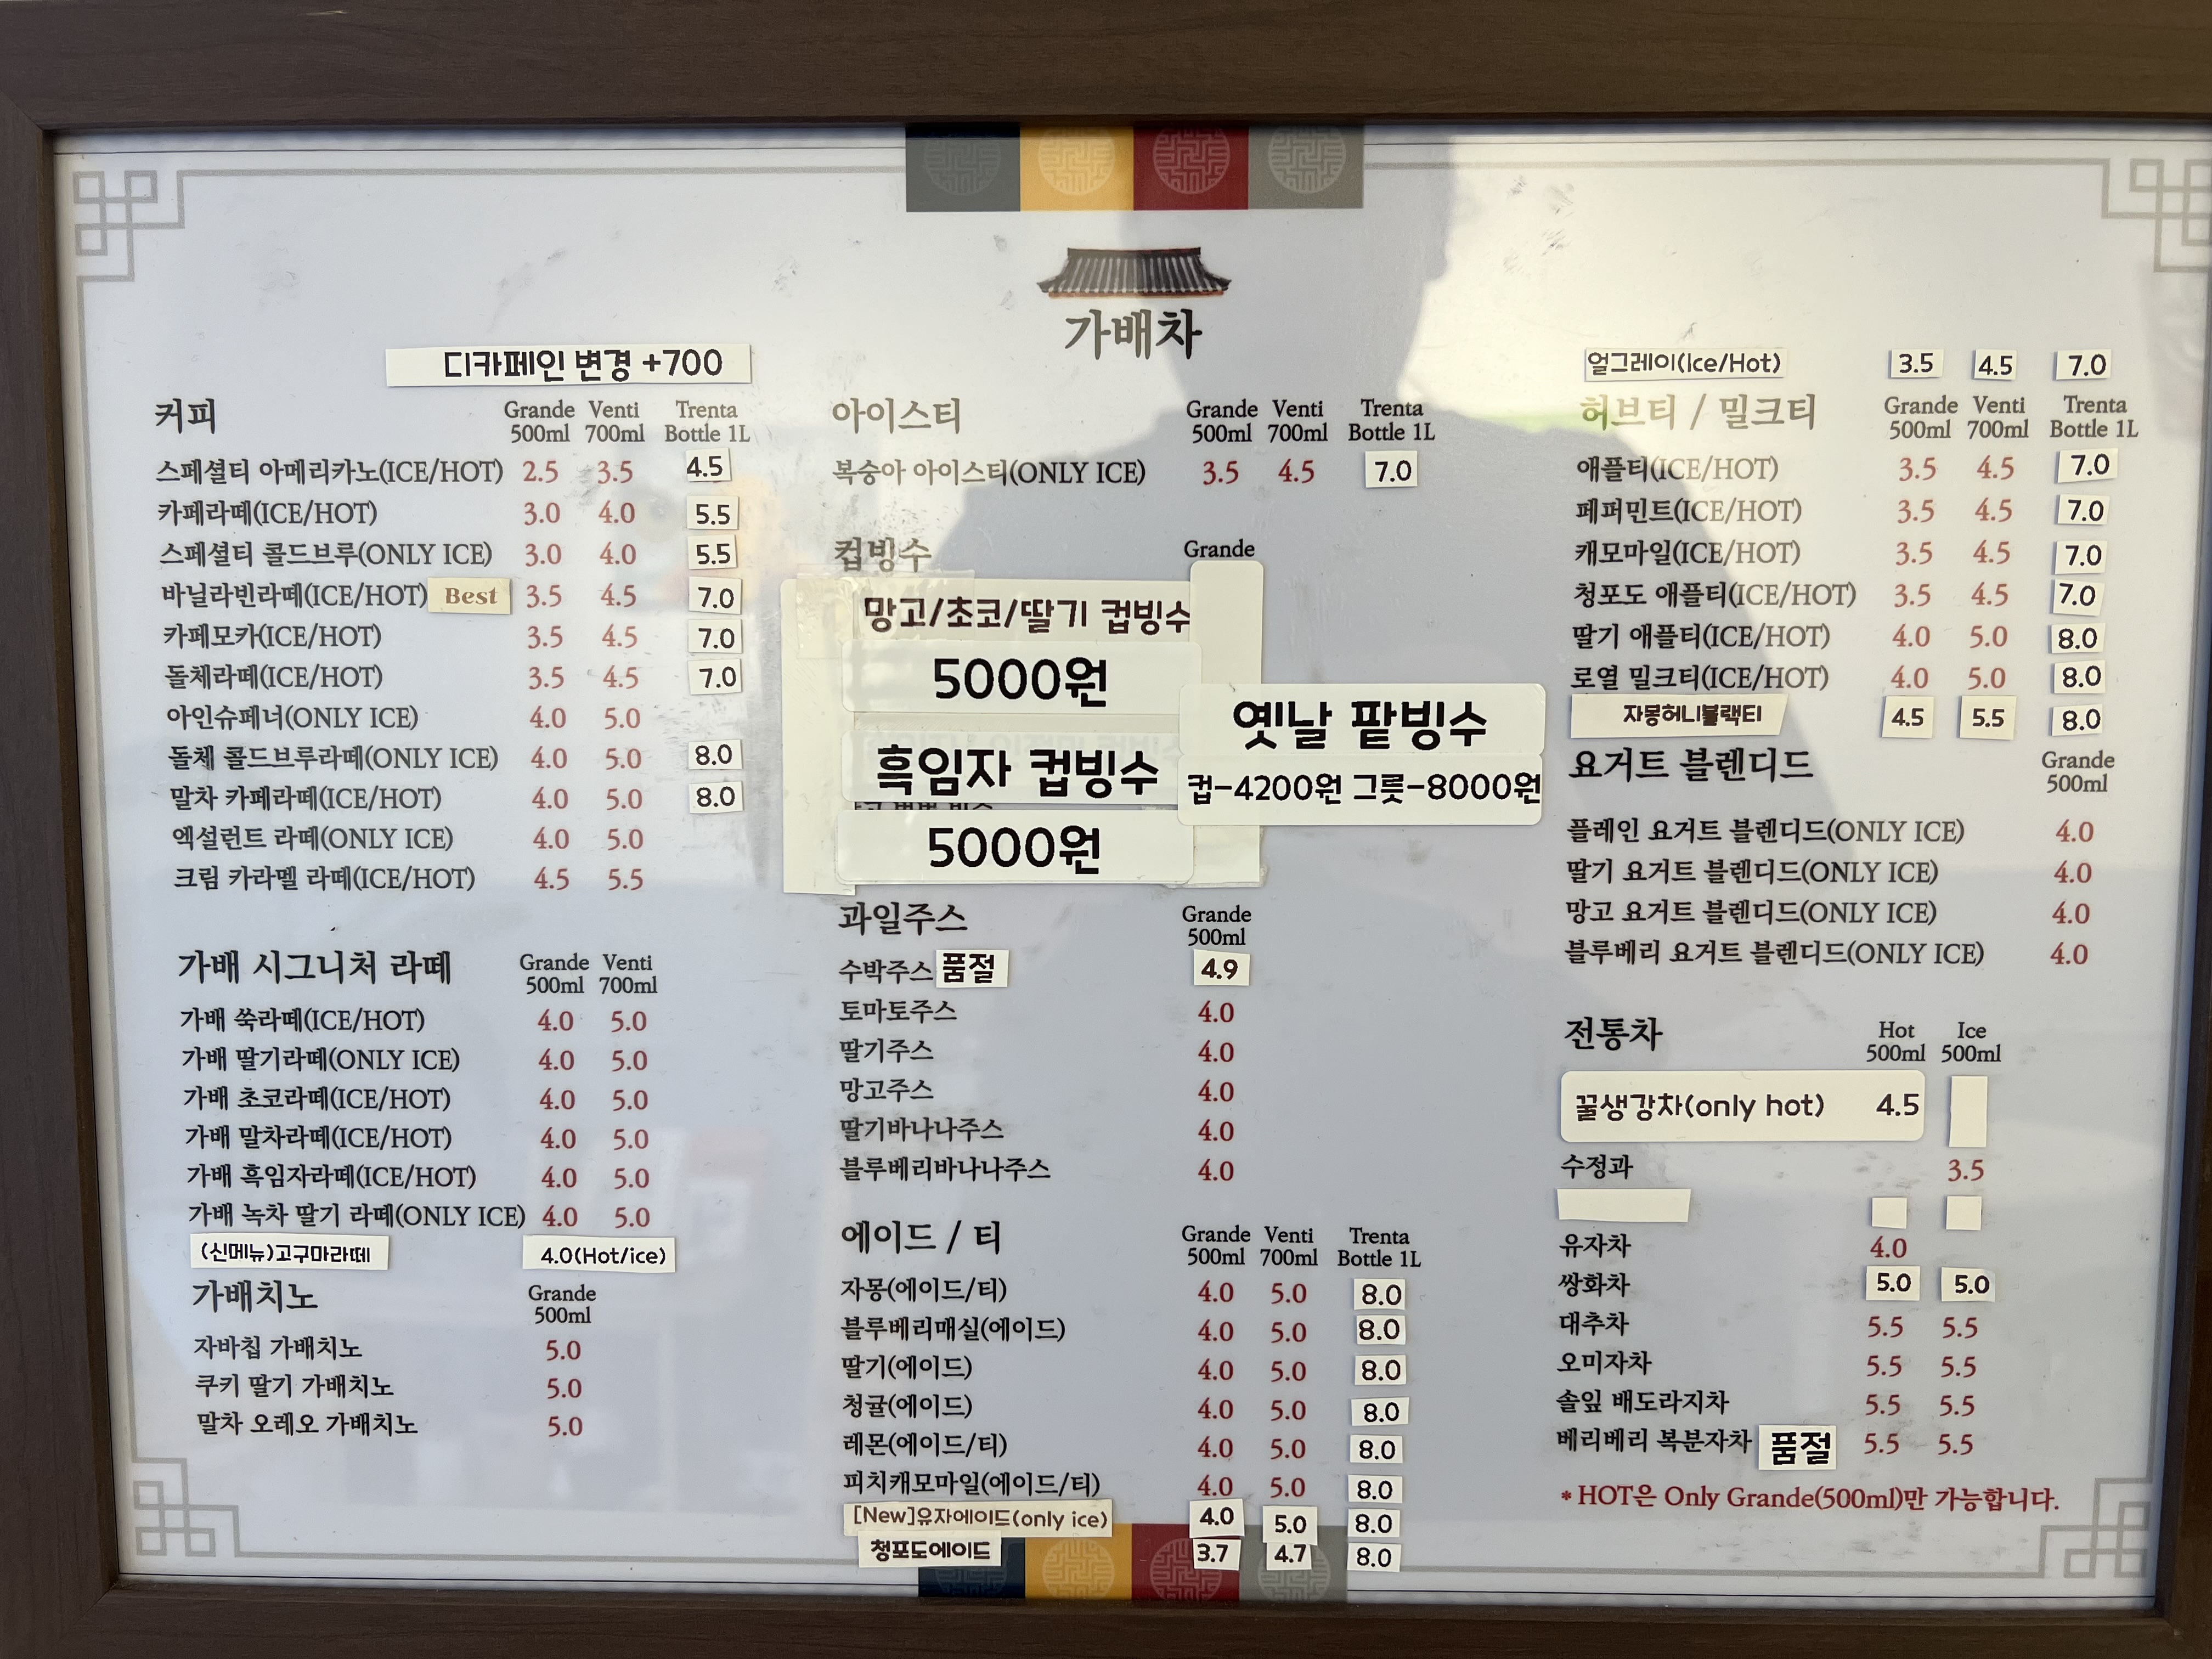 가배차
디카페인 변경 +700
커피 Grande 500ml Venti 700ml Trenta Bottle 1L
스페셜티 아메리카노(ICE/HOT) 2.5 3.5 4.5
카페라떼(ICE/HOT) 3.0 4.0 5.5
스페셜티 콜드브루(ONLY ICE) 3.0 4.0 5.5
바닐라빈라떼(ICE/HOT) Best 3.5 4.5 7.0
카페모카(ICE/HOT) 3.5 4.5 7.0
돌체라떼(ICE/HOT) 3.5 4.5 7.0
아인슈페너(ONLY ICE) 4.0 5.0
돌체 콜드브루라떼(ONLY ICE) 4.0 5.0 8.0
말차 카페라떼(ICE/HOT) 4.0 5.0 8.0
엑설런트 라떼(ONLY ICE) 4.0 5.0
크림 카라멜 라떼(ICE/HOT) 4.5 5.5
가배 시그니처 라떼 Grande 500ml Venti 700ml
가배 쑥라떼(ICE/HOT) 4.0 5.0
가배 딸기라떼(ONLY ICE) 4.0 5.0
가배 초코라떼(ICE/HOT) 4.0 5.0
가배 말차라떼(ICE/HOT) 4.0 5.0
가배 흑임자라떼(ICE/HOT) 4.0 5.0
가배 녹차 딸기 라떼(ONLY ICE) 4.0 5.0
(신메뉴)고구마라떼 4.0(Hot/ice)
가배치노 Grande 500ml
자바칩 가배치노 5.0
쿠키 딸기 가배치노 5.0
말차 오레오 가배치노 5.0
아이스티 Grande 500ml Venti 700ml Trenta Bottle 1L
복숭아 아이스티(ONLY ICE) 3.5 4.5 7.0
컵빙수 Grande
망고/초코/딸기 컵빙수
5000원
흑임자 컵빙수
5000원
옛날 팥빙수
컵-4200원 그릇-8000원
과일주스 Grande 500ml
수박주스 품절 4.9
토마토주스 4.0
딸기주스 4.0
망고주스 4.0
딸기바나나주스 4.0
블루베리바나나주스 4.0
에이드 / 티 Grande 500ml Venti 700ml Trenta Bottle 1L
자몽(에이드/티) 4.0 5.0 8.0
블루베리매실(에이드) 4.0 5.0 8.0
딸기(에이드) 4.0 5.0 8.0
청귤(에이드) 4.0 5.0 8.0
레몬(에이드/티) 4.0 5.0 8.0
피치캐모마일(에이드/티) 4.0 5.0 8.0
[New]유자에이드(only ice) 4.0 5.0 8.0
청포도에이드 3.7 4.7 8.0
얼그레이(Ice/Hot) 3.5 4.5 7.0
허브티 / 밀크티 Grande 500ml Venti 700ml Trenta Bottle 1L
애플티(ICE/HOT) 3.5 4.5 7.0
페퍼민트(ICE/HOT) 3.5 4.5 7.0
캐모마일(ICE/HOT) 3.5 4.5 7.0
청포도 애플티(ICE/HOT) 3.5 4.5 7.0
딸기 애플티(ICE/HOT) 4.0 5.0 8.0
로열 밀크티(ICE/HOT) 4.0 5.0 8.0
자몽허니블랙티 4.5 5.5 8.0
요거트 블렌디드 Grande 500ml
플레인 요거트 블렌디드(ONLY ICE) 4.0
딸기 요거트 블렌디드(ONLY ICE) 4.0
망고 요거트 블렌디드(ONLY ICE) 4.0
블루베리 요거트 블렌디드(ONLY ICE) 4.0
전통차 Hot 500ml Ice 500ml
꿀생강차(only hot) 4.5
수정과 3.5
유자차 4.0
쌍화차 5.0 5.0
대추차 5.5 5.5
오미자차 5.5 5.5
솔잎 배도라지차 5.5 5.5
베리베리 복분자차 품절 5.5 5.5
* HOT은 Only Grande(500ml)만 가능합니다.